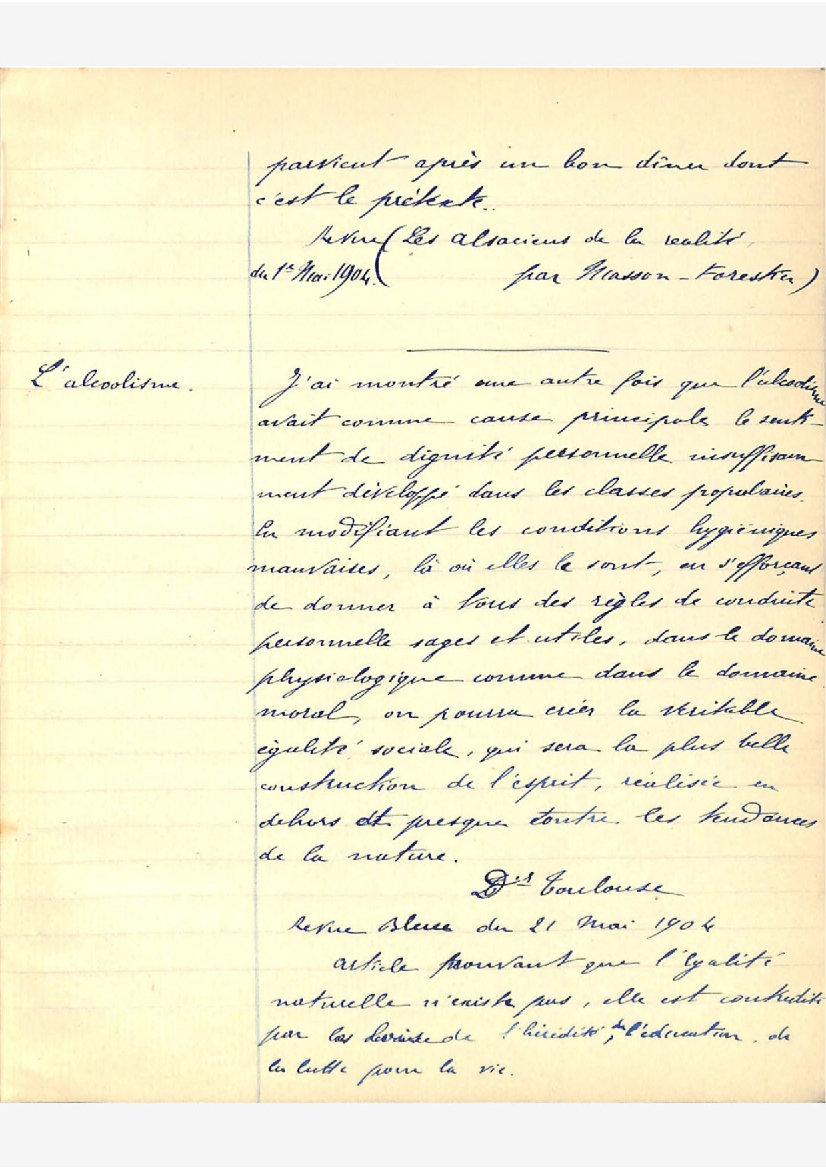 parvient après un bon dîner dont
c'est le prétexte.
Revue (Les Alsaciens de la réalité,
du 1er Mai 1904. par Masson-Forestier)
L'alcoolisme.
J'ai montré une autre fois que l'alcoolisme
avait comme cause principale le senti-
ment de dignité personnelle insuffisam
ment développé dans les classes populaires.
En modifiant les conditions hygiéniques
mauvaises, là où elles le sont, en s'efforçant
de donner à tous des règles de conduite
personnelle sages et utiles, dans le domaine
physiologique comme dans le domaine
moral, on pourra créer la véritable
égalité sociale, qui sera la plus belle
construction de l'esprit, réalisée en
dehors et presque contre les tendances
de la nature.
Dr Toulouse
Revue Bleue du 21 Mai 1904
article prouvant que l'égalité
naturelle n'existe pas, elle est contredite
par les de l'hérédité, de l'éducation, de
la lutte pour la vie.